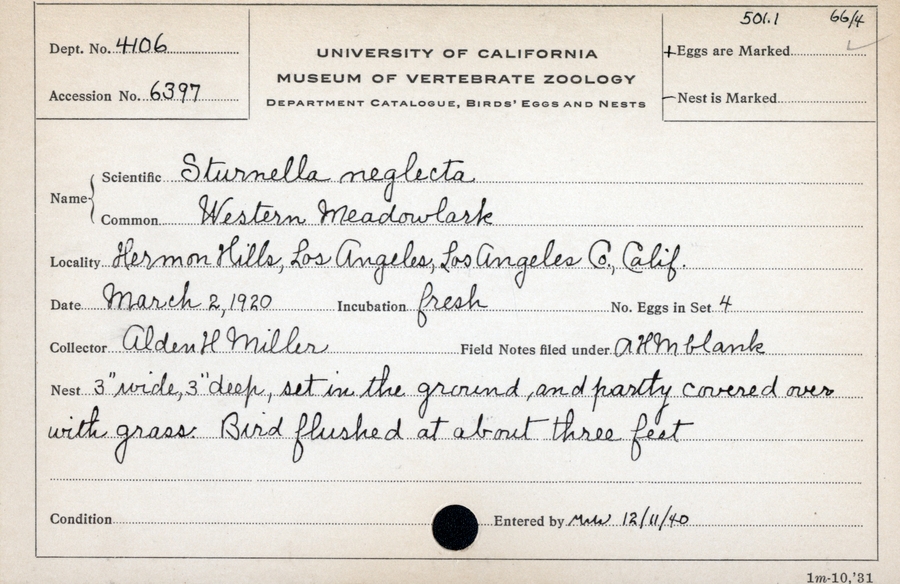 501.1 66/4
Dept. No. 4106
UNIVERSITY OF CALIFORNIA
MUSEUM OF VERTEBRATE ZOOLOGY
DEPARTMENT CATALOGUE, BIRDS' EGGS AND NESTS
+Eggs are Marked
Accession No. 6397
—Nest is Marked
Name
Scientific Sturnella neglecta
Common Western Meadowlark
Locality Hermon Hills, Los Angeles, Los Angeles Co., Calif.
Date March 2, 1920 Incubation fresh No. Eggs in Set 4
Collector Alden H Miller Field Notes filed under AHM blank
Nest 3" wide, 3" deep, set in the ground, and partly covered over
with grass. Bird flushed at about three feet
Condition Entered by 12/11/40
1m-10,'31